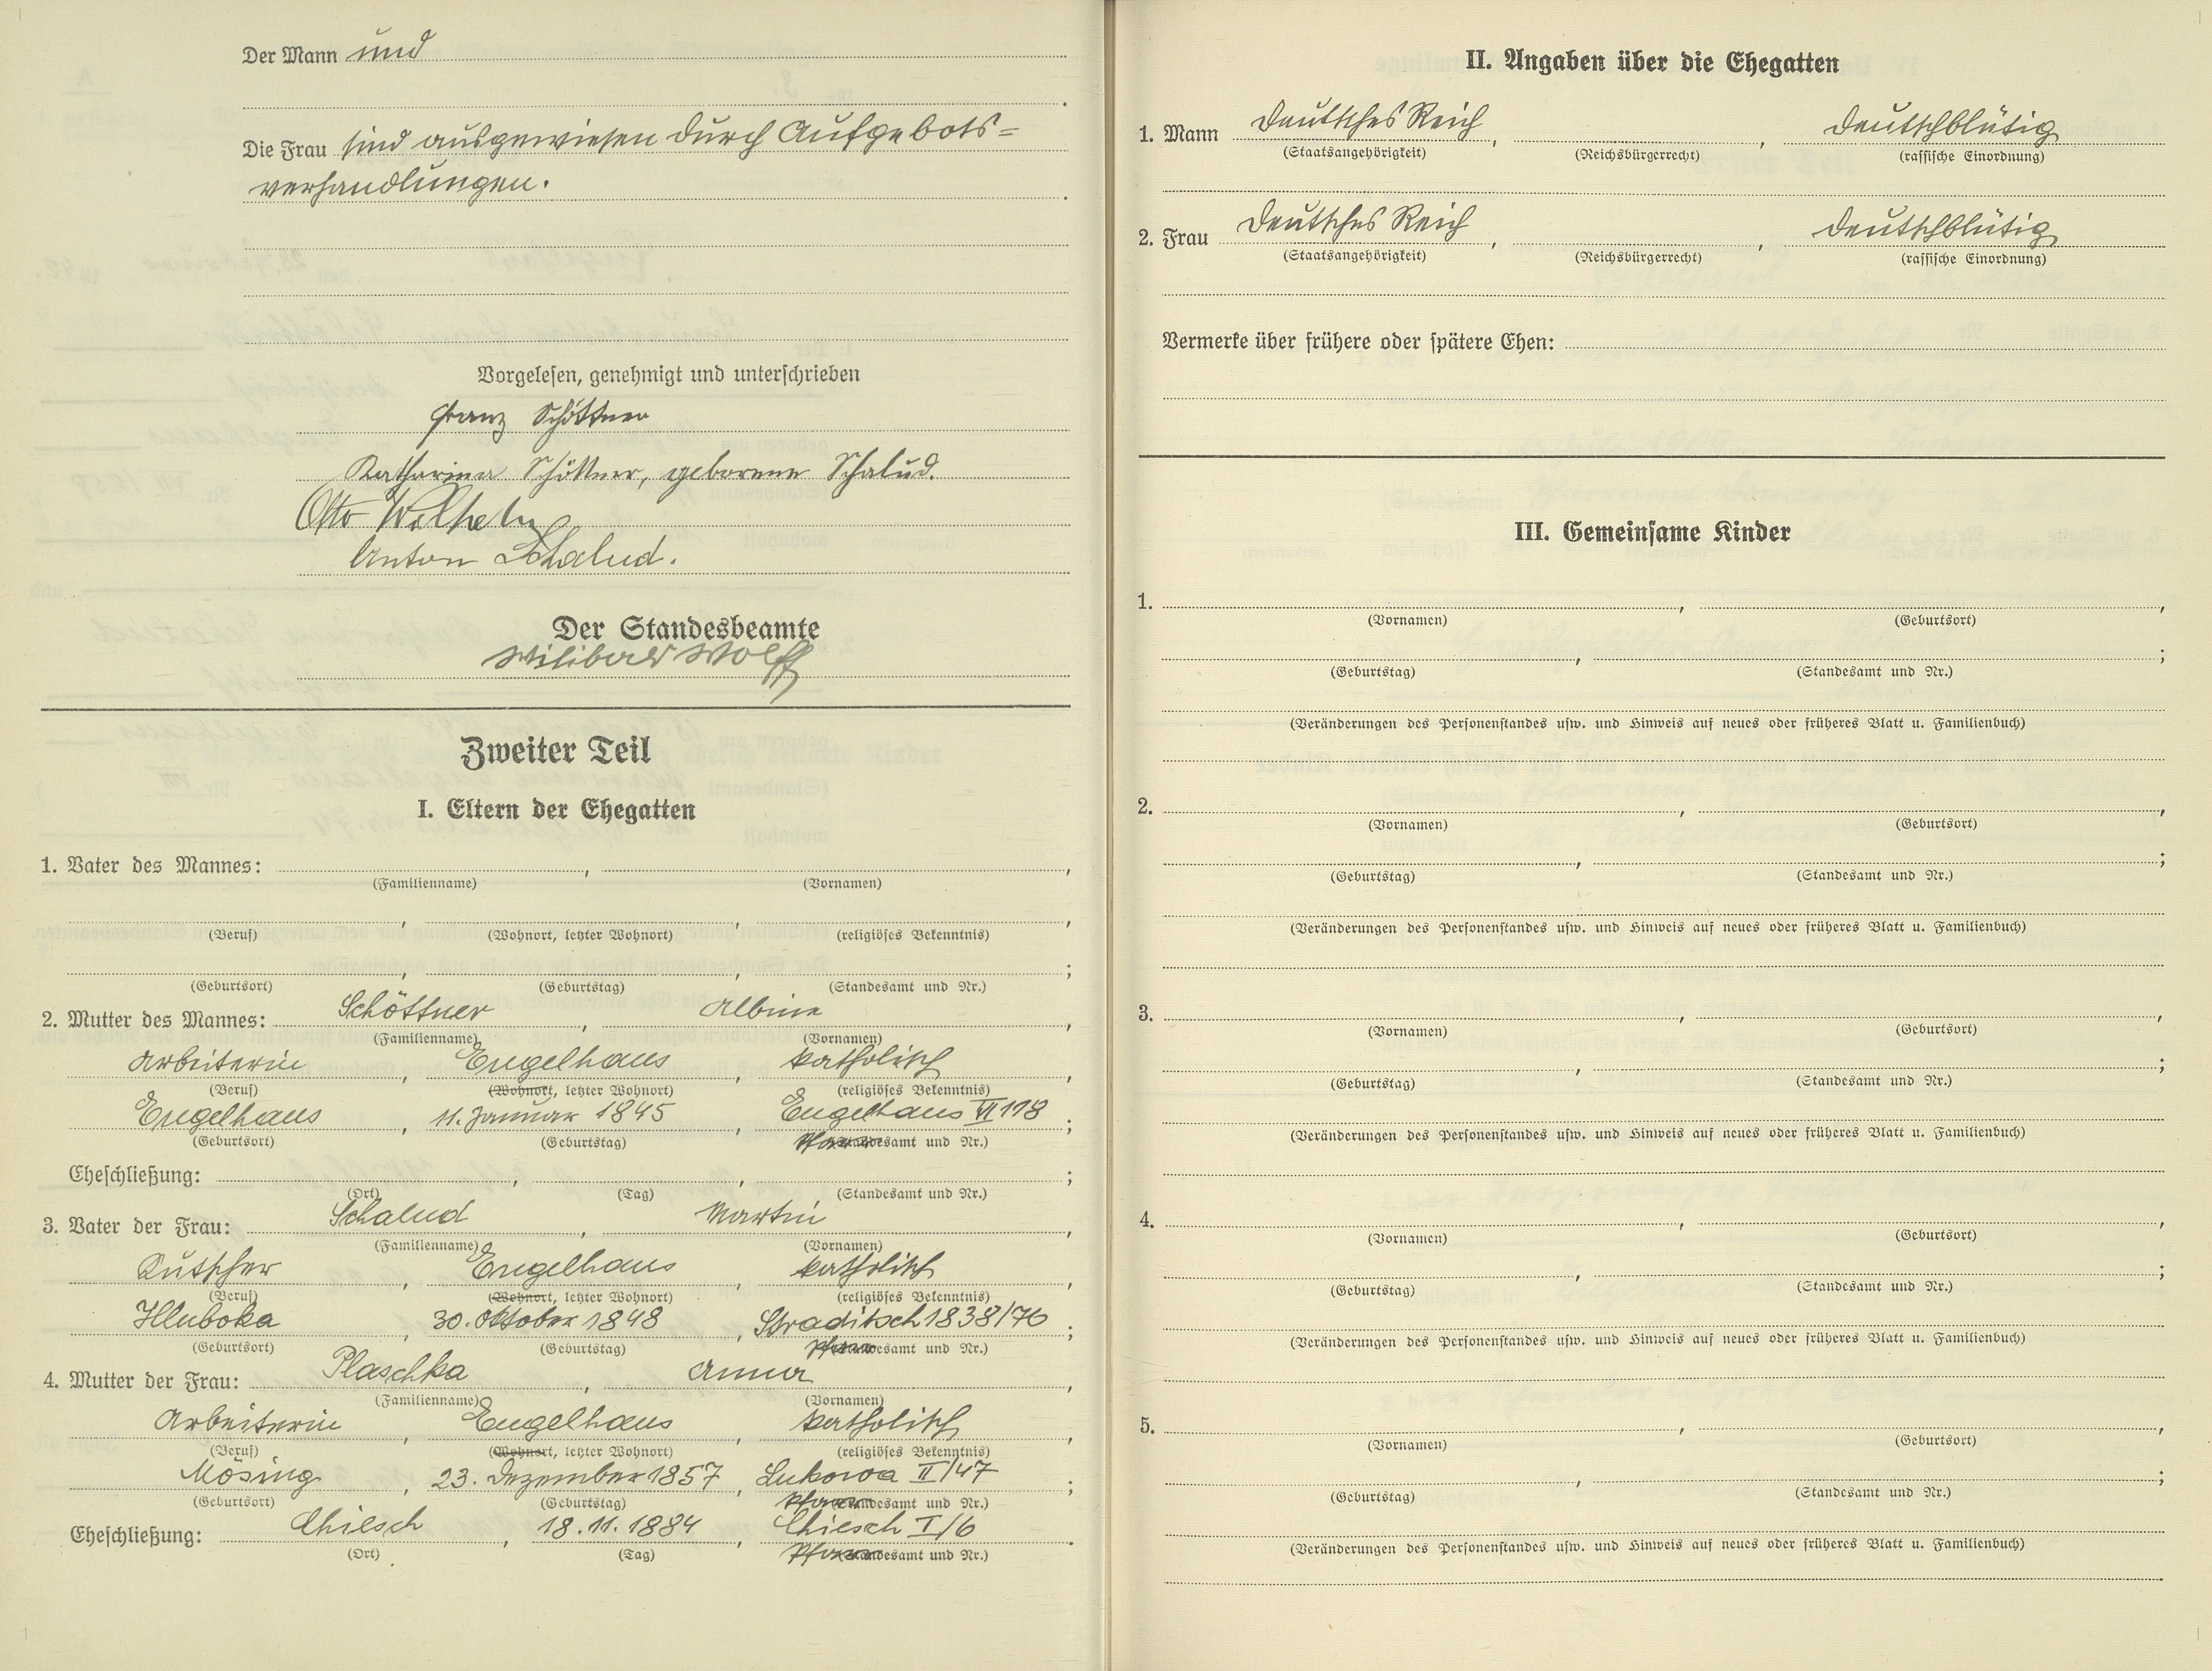 Der Mann und
Die Frau sind ausgewiesen durch Aufgebots=
verhandlungen.
Vorgelesen, genehmigt und unterschrieben
Franz Schöttner
Katharina Schöttner, geborene Schalud.
Otto Wilhelm
Anton Schalud.
Der Standesbeamte
Wilibald Wolff
Zweiter Teil
I. Eltern der Ehegatten
1. Vater des Mannes: , ,
(Familienname) (Vornamen)
, , ,
(Beruf) (Wohnort, letzter Wohnort) (religiöses Bekenntnis)
, , ;
(Geburtsort) (Geburtstag) (Standesamt und Nr.)
2. Mutter des Mannes: Schöttner , Albina ,
(Familienname) (Vornamen)
Arbeiterin , Engelhaus , katholisch ,
(Beruf) (Wohnort, letzter Wohnort) (religiöses Bekenntnis)
Engelhaus , 11. Januar 1845 , Engelhaus VI 118 ;
(Geburtsort) (Geburtstag) Pfarramt und Nr.)
Eheschließung: , , ;
(Ort) (Tag) (Standesamt und Nr.)
3. Vater der Frau: Schalud , Martin ,
(Familienname) (Vornamen)
Kutscher , Engelhaus , katholisch ,
(Beruf) (Wohnort, letzter Wohnort) (religiöses Bekenntnis)
Hluboka , 30. Oktober 1848 , Straditsch 1838/76 ;
(Geburtsort) (Geburtstag) Pfarramt und Nr.)
4. Mutter der Frau: Plaschka , Anna ,
(Familienname) (Vornamen)
Arbeiterin , Engelhaus , katholisch ,
(Beruf) (Wohnort, letzter Wohnort) (religiöses Bekenntnis)
Mösing , 23. Dezember 1857 , Lukowa II/47 ;
(Geburtsort) (Geburtstag) Pfarramt und Nr.)
Eheschließung: Chiesch , 18.11.1884 , Chiesch I/6 .
(Ort) (Tag) Pfarramt und Nr.)
II. Angaben über die Ehegatten
1. Mann Deutsches Reich , , deutschblütig
(Staatsangehörigkeit) (Reichsbürgerrecht) (rassische Einordnung)
2. Frau Deutsches Reich , , deutschblütig
(Staatsangehörigkeit) (Reichsbürgerrecht) (rassische Einordnung)
Vermerke über frühere oder spätere Ehen:
III. Gemeinsame Kinder
1. , ,
(Vornamen) (Geburtsort)
, ;
(Geburtstag) (Standesamt und Nr.)
(Veränderungen des Personenstandes usw. und Hinweis auf neues oder früheres Blatt u. Familienbuch)
2. , ,
(Vornamen) (Geburtsort)
, ;
(Geburtstag) (Standesamt und Nr.)
(Veränderungen des Personenstandes usw. und Hinweis auf neues oder früheres Blatt u. Familienbuch)
3. , ,
(Vornamen) (Geburtsort)
, ;
(Geburtstag) (Standesamt und Nr.)
(Veränderungen des Personenstandes usw. und Hinweis auf neues oder früheres Blatt u. Familienbuch)
4. , ,
(Vornamen) (Geburtsort)
, ;
(Geburtstag) (Standesamt und Nr.)
(Veränderungen des Personenstandes usw. und Hinweis auf neues oder früheres Blatt u. Familienbuch)
5. , ,
(Vornamen) (Geburtsort)
, ;
(Geburtstag) (Standesamt und Nr.)
(Veränderungen des Personenstandes usw. und Hinweis auf neues oder früheres Blatt u. Familienbuch)